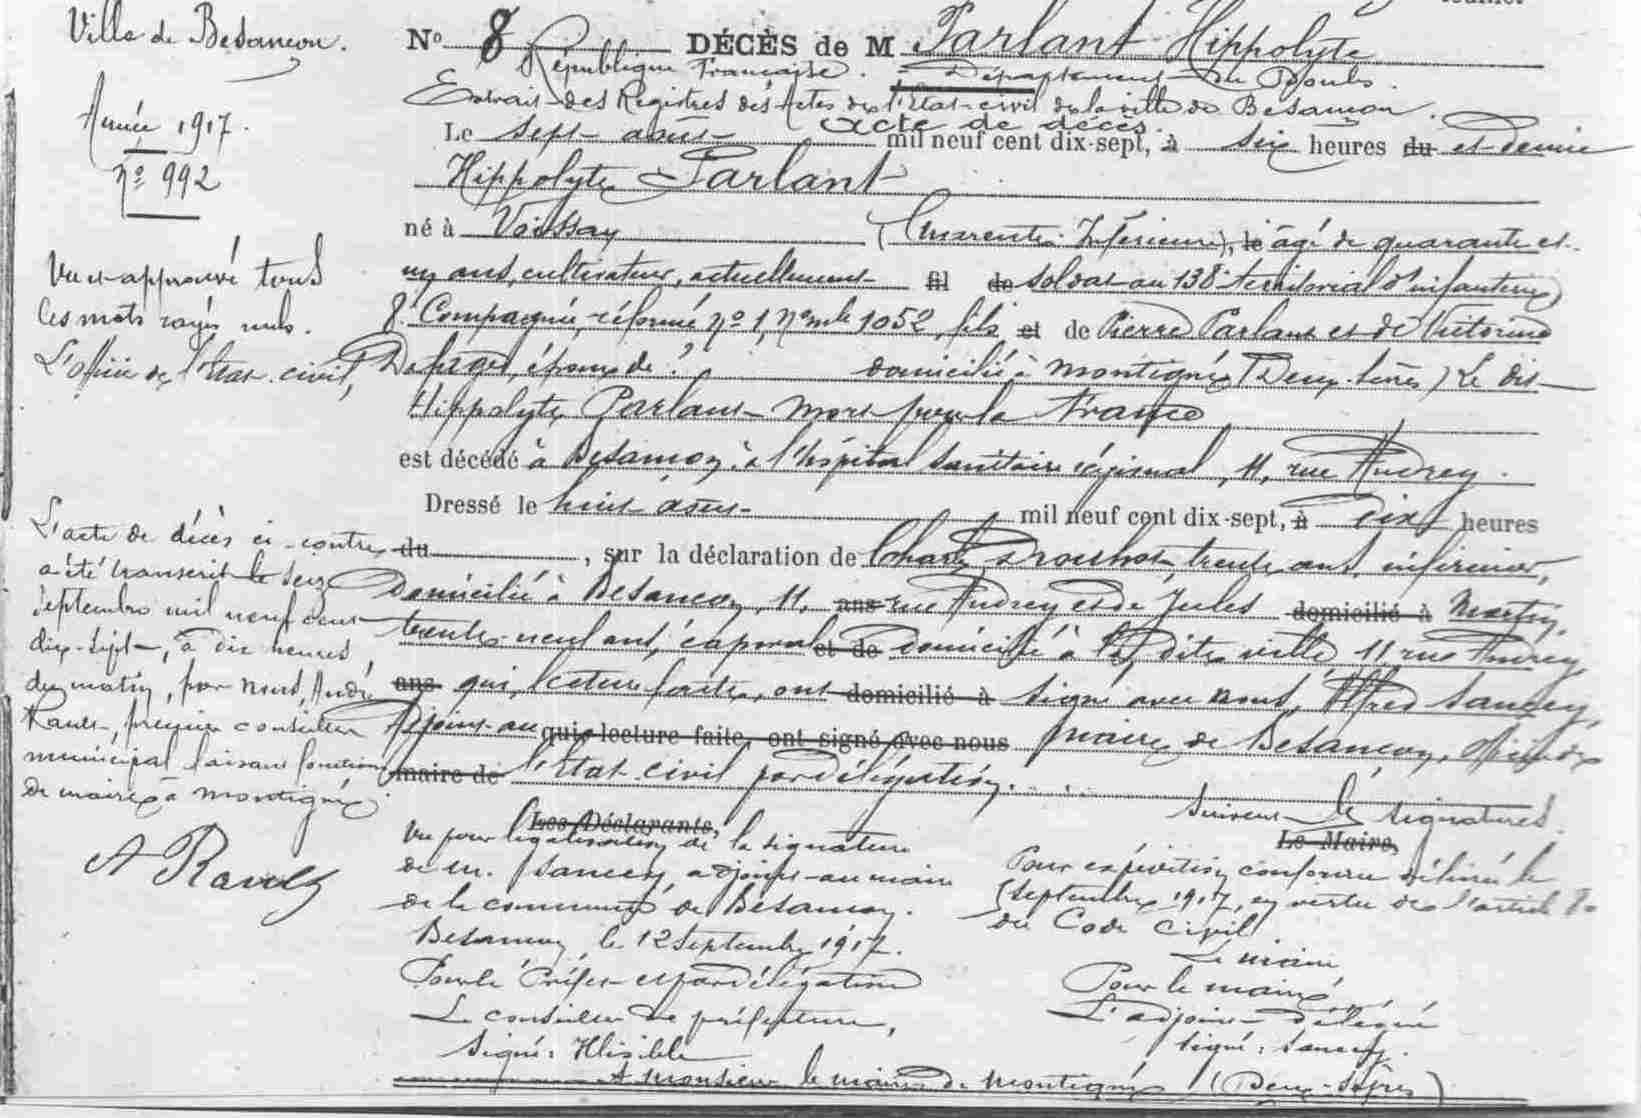 Ville de Besançon.
Année 1917.
nº 992
Vu et approuvé tous
les mots rayés nuls.
L'officier de l'Etat civil,
L'acte de décès ci-contre
a été transcrit le seize
septembre mil neuf cent
dix-sept, à dix heures
du matin, par nous, André
Ranes, premier conseiller
municipal faisant fonctions
de maire à Montigné.
A Ranes
Nº 8 DÉCÈS de M Parlant Hippolyte
République Française. = Département du Doubs.
Extrait des Registres des Actes de l'Etat-civil de la ville de Besançon.
Acte de décès.
Le sept août mil neuf cent dix-sept, à six heures du et demie
Hippolyte Parlant
né à Voissay (Charente Inférieure), le âgé de quarante et
un ans, cultivateur, actuellement fil de soldat au 138e territorial d'infanterie
8e Compagnie, réformé nº 1, nº mle 1052, fils et de Pierre Parlant et de Victorine
époux de ? domicilié à Montigné (Deux-Sèvres) Le dit
Hippolyte Parlant mort pour la France
est décédé à Besançon, à l'hôpital sanitaire régional, 11, rue Audrey.
Dressé le huit août mil neuf cent dix-sept, à dix heures
du , sur la déclaration de Charles Drouhot, trente ans, infirmier,
Domicilié à Besançon, 11, ans rue Audrey et de Jules domicilié à Martin,
trente neuf ans, caporal et de domicilié à la dite ville 11 rue Audrey,
ans qui, lecture faite, ont domicilié à signé avec nous, Alfred Sancey,
Adjoint au qui, lecture faite, ont signé avec nous maire de Besançon, officier de
maire de l'Etat civil par délégation.
Suivent les signatures.
Les Déclarants, Le Maire,
Vu pour légalisation de la signature
de M. Sancey adjoint au maire
de la commune de Besançon.
Besançon, le 12 septembre 1917.
Pour le Préfet et par délégation
Le conseiller de préfecture,
Signé : Illisible
Pour expédition conforme délivrée le
septembre 1917, en vertu de l'article 80
du Code Civil
Le maire
Pour le maire,
L'adjoint délégué
signé : Sancey.
A Monsieur le maire de Montigné (Deux-Sèvres)